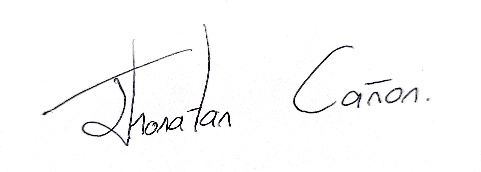 Jhonatan Cañon.